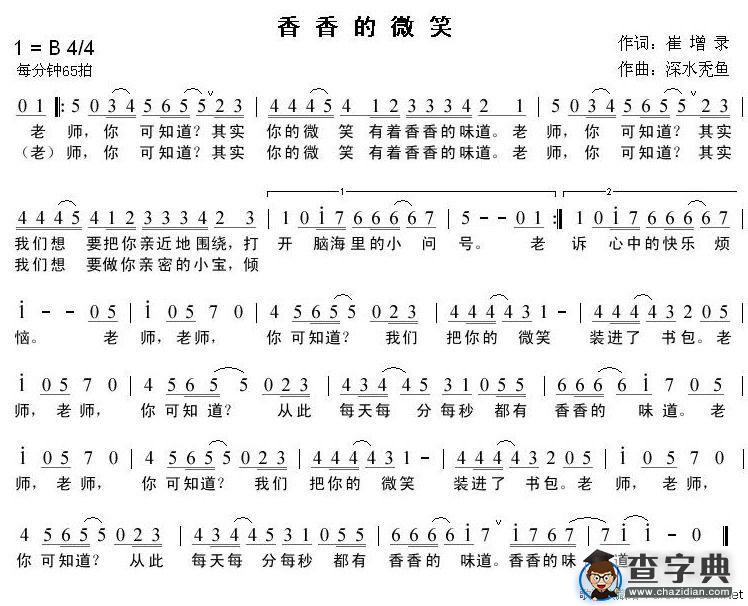 香香的微笑
1 = B 4/4
作词：崔增录
每分钟65拍
作曲：深水秃鱼
0 1 ‖: 5 0 3 4 5 6 5 5 2 3 | 4 4 4 5 4 1 2 3 3 3 4 2 1 | 5 0 3 4 5 6 5 5 2 3 |
老 师，你 可知道？其实 你的微 笑 有着香香的味道。老 师，你 可知道？其实
（老）师，你 可知道？其实 你的微 笑 有着香香的味道。老 师，你 可知道？其实
1 2
4 4 4 5 4 1 2 3 3 3 4 2 3 | 1 0 i 7 6 6 6 6 6 7 | 5 - - 0 1 :‖ 1 0 i 7 6 6 6 6 6 7 |
我们想 要把你亲近地围绕，打 开 脑海里的小 问 号。 老 诉 心中的快乐 烦
我们想 要做你亲密的小宝，倾
i - - 0 5 | i 0 5 7 0 | 4 5 6 5 5 0 2 3 | 4 4 4 4 4 3 1 - | 4 4 4 4 3 2 0 5 |
恼。 老 师，老师， 你 可知道？ 我们 把你的 微笑 装进了 书包。老
i 0 5 7 0 | 4 5 6 5 5 0 2 3 | 4 3 4 5 3 1 0 1 0 | 6 6 6 6 i 7 0 5 |
师，老师， 你 可知 道？ 从此 每天每 分每秒 都有 香香的 味道。老
i 0 5 7 0 | 4 5 6 5 5 0 2 3 | 4 4 4 4 4 3 1 - | 4 4 4 4 3 2 0 5 | i 0 5 7 0 |
师，老 师， 你 可知道？ 我们 把你的 微笑 装进了 书包。老 师，老师，
4 5 6 5 5 0 2 3 | 4 3 4 5 3 1 0 1 0 | 6 6 6 6 i 7 | i 7 6 7 i
你 可知道？ 从此 每天每 分每秒 都有 香香的 味道。香香的味 道
查字典
www.chazidian.com